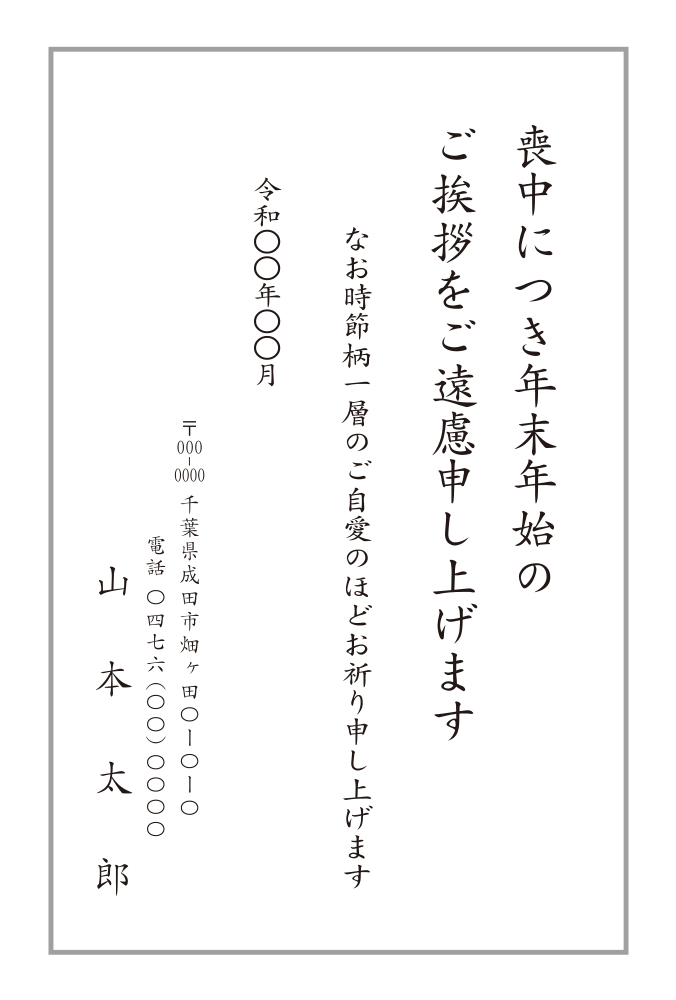 喪中につき年末年始の
ご挨拶をご遠慮申し上げます
なお時節柄一層のご自愛のほどお祈り申し上げます
令和〇〇年〇〇月
〒000-0000 千葉県成田市畑ヶ田〇ー〇ー〇
電話 〇四七六(〇〇)〇〇〇〇
山本太郎